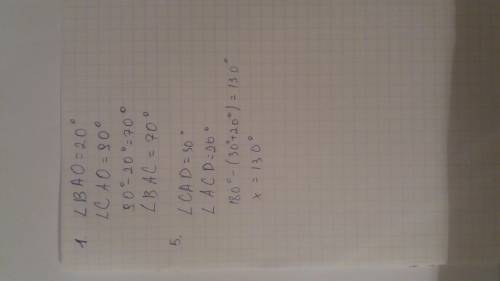 1. ∠BAO=20°
∠CAO=90°
90°-20°=70°
∠BAC=70°
5. ∠CAD=30°
∠ACD=20°
180°-(30°+20°)=130°
x=130°